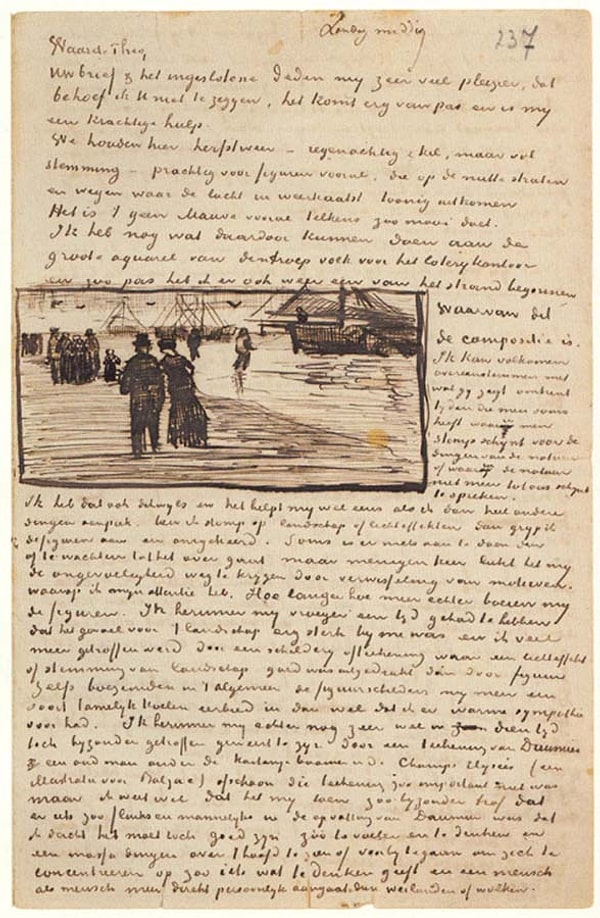 Zondag middag
237
Waarde Theo,
Uw brief & het ingeslotene deden my zeer veel pleizier, dat
behoef ik U niet te zeggen, het komt erg van pas en is my
een krachtige hulp.
We houden hier herfstweer – regenachtig & kil, maar vol
stemming – prachtig voor figuren vooral, die op de natte straten
en wegen waar de lucht in weerkaatst toonig uitkomen
Het is 't geen Mauve vooral telkens zoo mooi doet.
Ik heb nog wat daardoor kunnen doen aan de
groote aquarel van den troep volk voor het loterijkantoor
en zoo pas heb ik er ook weer een van het strand begonnen
waarvan dit
de compositie is.
Ik kan volkomen
overeenstemmen met
wat gy zegt omtrent
tyden die men soms
heeft waarin men
stomp schijnt voor de
dingen van de natuur
of waarin de natuur
niet meer tot ons schijnt
te spreken.
Ik heb dat ook dikwyls en het helpt my wel eens als ik dan heel andere
dingen aanpak. Ben ik stomp op landschap of lichteffekten dan gryp ik
de figuren aan en omgekeerd. Soms is er niets aan te doen dan
af te wachten tot het over gaat maar menigen keer lukt het my
de ongevoeligheid weg te krygen door verwisseling van motieven
waarop ik myn attentie heb. Hoe langer hoe meer echter boeien my
de figuren. Ik herinner my vroeger een tyd gehad te hebben
dat het gevoel voor 't landschap erg sterk by me was en ik veel
meer getroffen werd door een schildery of teekening waar een lichteffekt
of stemming van landschap goed was uitgedrukt dan door figuur
Zelfs boezemden in 't algemeen de figuurschilders my meer een
soort tamelyk koelen eerbied in dan wel dat ik er warme sympathie
voor had. Ik herinner my echter nog zeer wel in dien tyd
toch byzonder getroffen geweest te zyn door een teekening van Daumier
een oud man onder de kastanjeboomen in d. Champs Elysées (een
illustratie voor Balzac) ofschoon die teekening zoo important niet was
maar ik weet wel dat het my toen zoo byzonder trof dat
er iets zoo flinks en mannelyks in de opvatting van Daumier was dat
ik dacht het moet toch goed zyn zóó te voelen en te denken en
een massa dingen over 't hoofd te zien of voorby te gaan om zich te
concentreeren op zoo iets wat te denken geeft en een mensch
als mensch meer direkt persoonlyk aangaat dan weilanden of wolken.